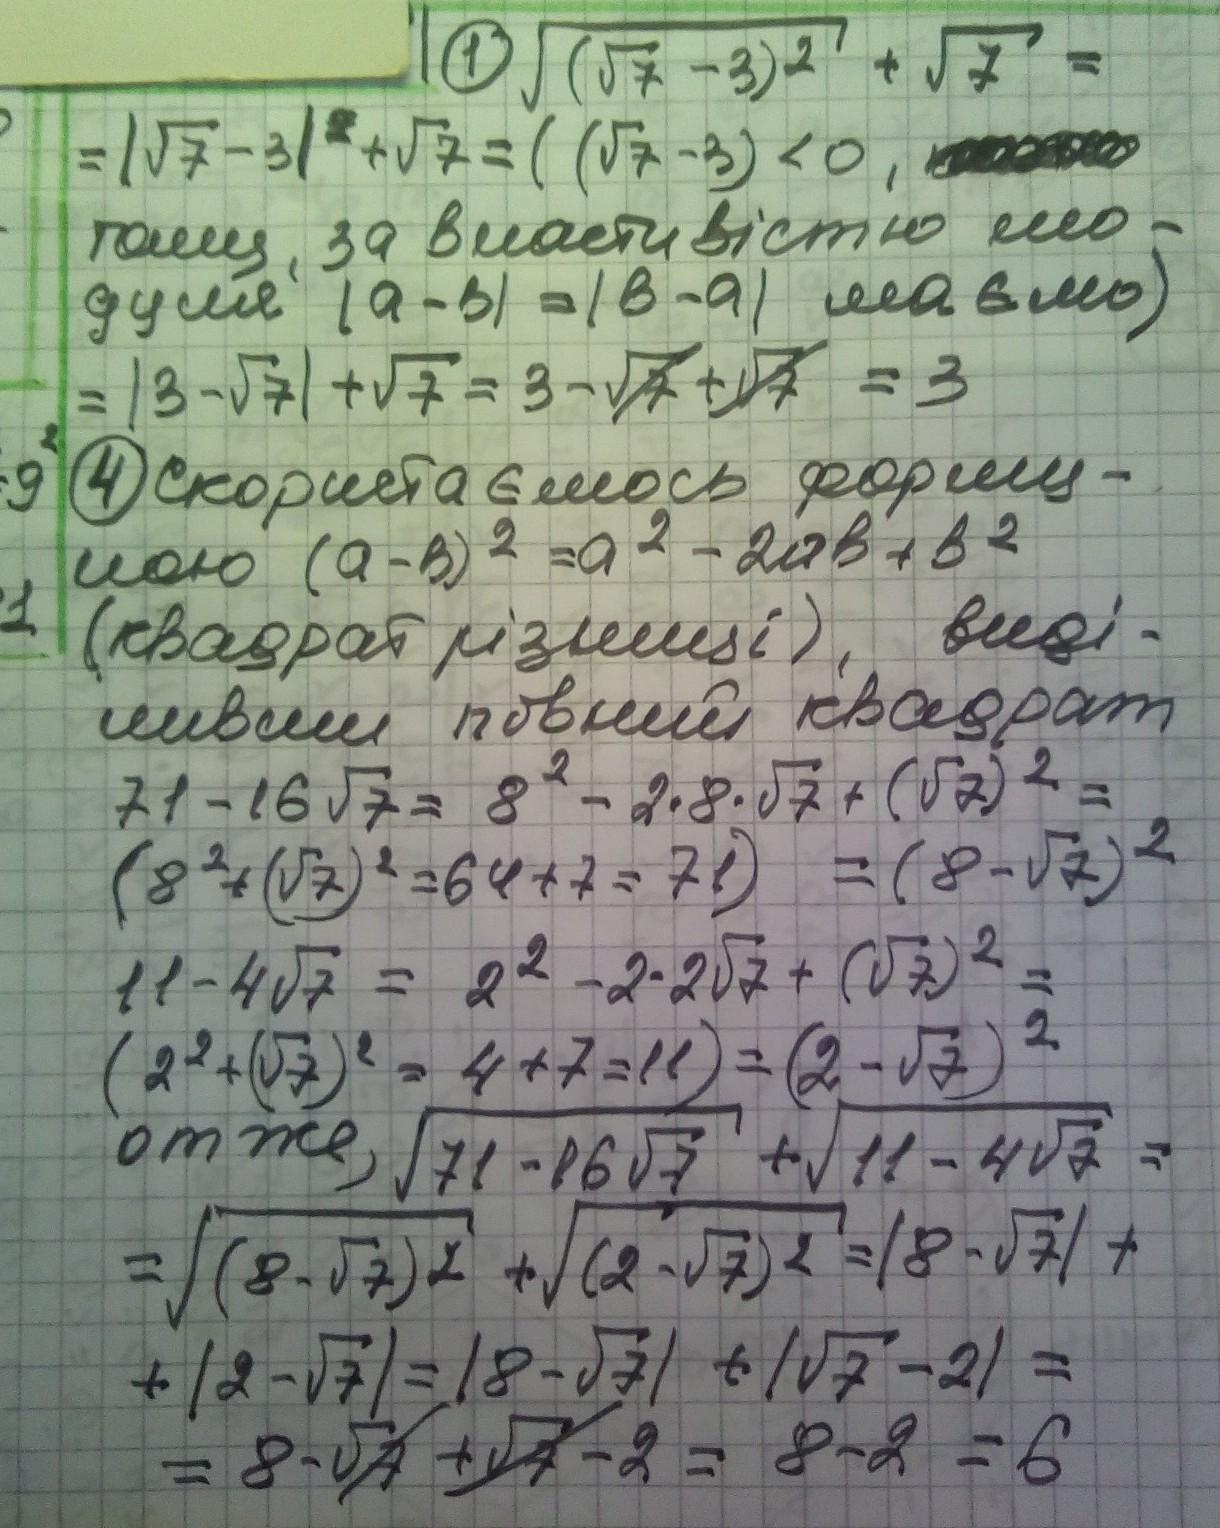 ① √(√7 - 3)² + √7 =
= |√7 - 3| + √7 = ( (√7 - 3) < 0,
тому, за властивістю мо-
дуля |a - b| = |b - a| маємо)
= |3 - √7| + √7 = 3 - √7 + √7 = 3
④ Скористаємось форму-
лою (a - b)² = a² - 2ab + b²
(квадрат різниці), виді-
ливши повний квадрат
71 - 16√7 = 8² - 2·8·√7 + (√7)² =
(8² + (√7)² = 64 + 7 = 71) = (8 - √7)²
11 - 4√7 = 2² - 2·2√7 + (√7)² =
(2² + (√7)² = 4 + 7 = 11) = (2 - √7)²
отже, √(71 - 16√7) + √(11 - 4√7) =
= √(8 - √7)² + √(2 - √7)² = |8 - √7| +
+ |2 - √7| = |8 - √7| + |√7 - 2| =
= 8 - √7 + √7 - 2 = 8 - 2 = 6